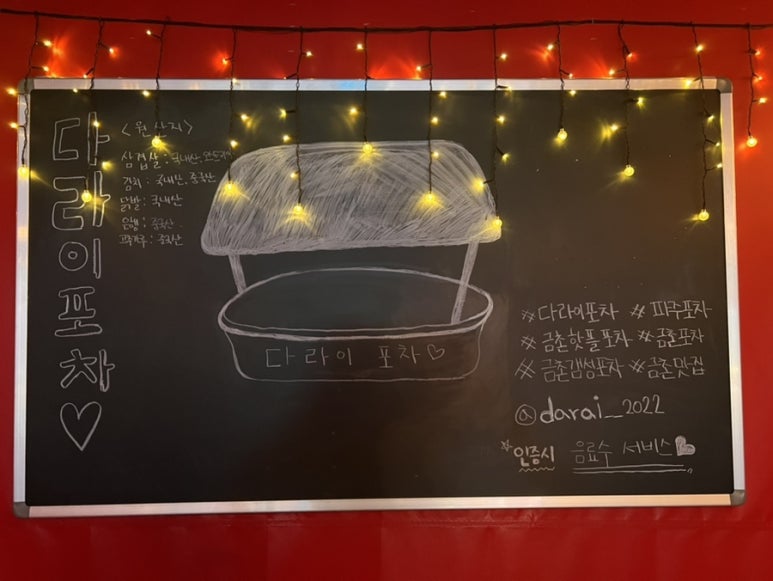 다라이포차♡
<원산지>
삼겹살 : 국내산,
김치 : 국내산, 중국산
닭발 : 국내산
은행 : 중국산
고춧가루 : 중국산
다라이 포차♡
#다라이포차 #파주포차
#금촌핫플포차 #금촌포차
#금촌감성포차 #금촌맛집
@darai_2022
☆인증시 음료수 서비스♥